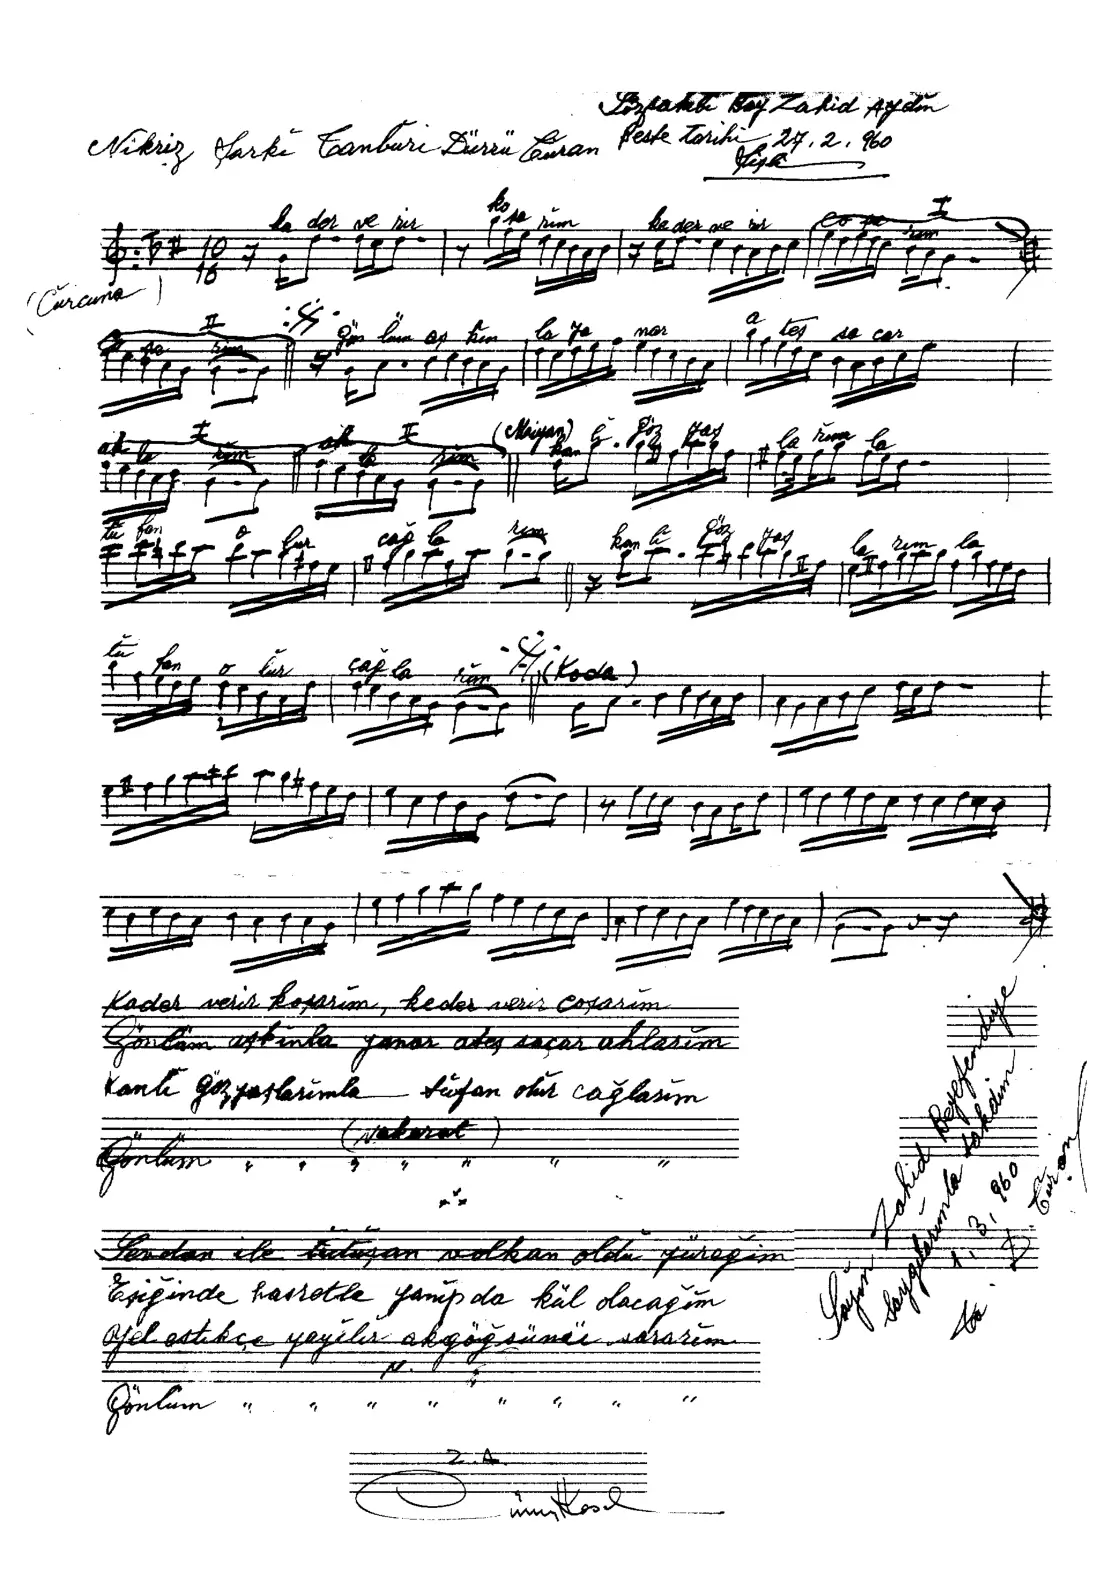 Bay Zahid Aydın
Nikriz Şarkı Tanburi Dürrü Turan Beste tarihi 27.2.960
ka der ve rir ko şa rım ke der ve rir co şa rım I
10
16
(Curcuna)
II
şa rım gön lüm aş kın la ya nar a teş sa çar
I II (Meiyan)
ah la rım ah la rım kan lı göz yaş la rım la
tu fan o lur çağ la rım kan lı göz yaş la rım la
tu fan o lur çağ la rım (Koda)
Kader verir koşarım, keder verir coşarım
Gönlüm aşkınla yanar ateş saçar ahlarım
Kanlı göz yaşlarımla tufan olur çağlarım
(Nakarat)
Gönlüm " " " " " "
Sevdan ile tutuşan volkan oldu yüreğim
Eşiğinde hasretle yanıp da kül olacağım
Yel estikçe yayılır akgöğsünü sararım
N.
Gönlüm " " " " " " " "
Z. A.
Sayın Zahid Beyefendiye
saygılarımla takdim
1.3.960
D. Turan